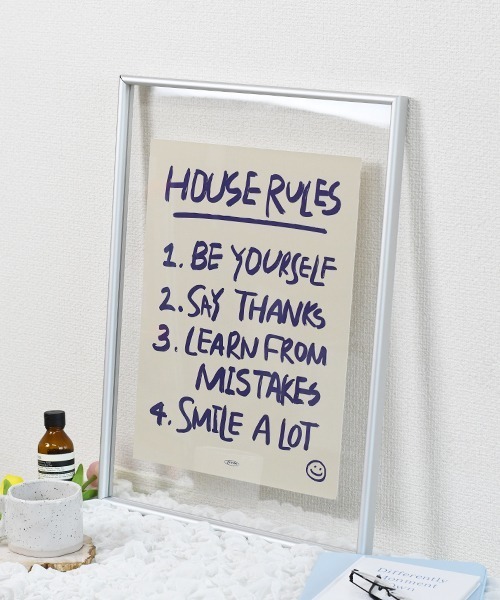 HOUSE RULES
1. BE YOURSELF
2. SAY THANKS
3. LEARN FROM
MISTAKES
4. SMILE A LOT
Differently